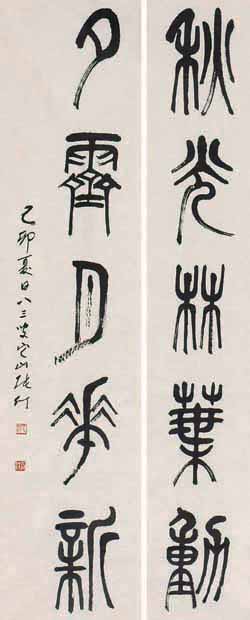 秋光林葉動
夕霽月華新
己卯夏日八三叟它山張仃